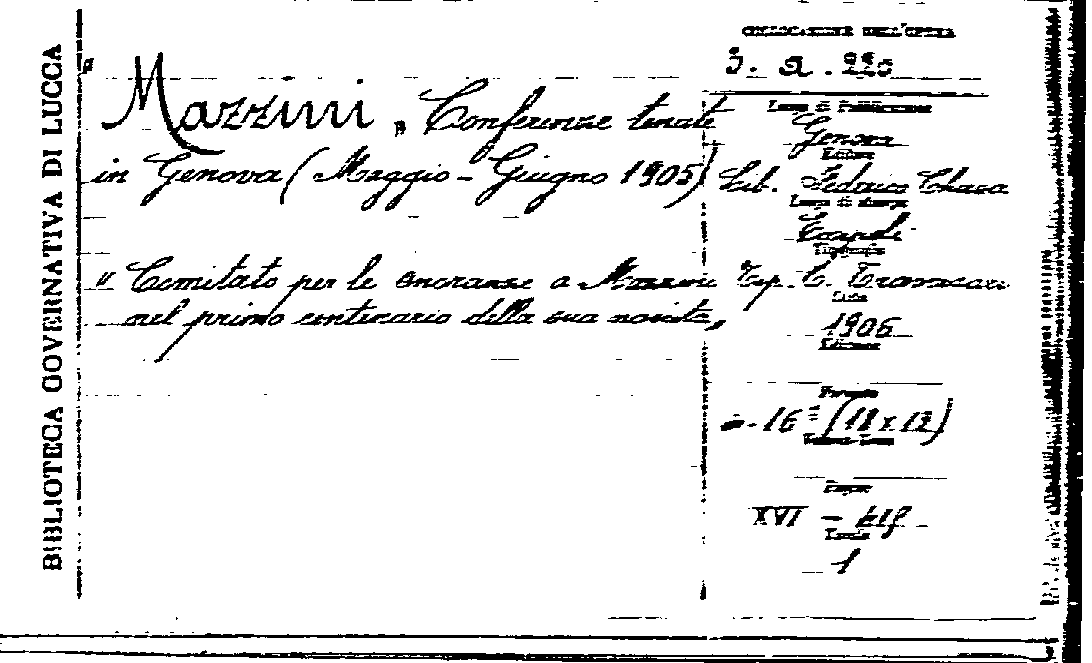 BIBLIOTECA GOVERNATIVA DI LUCCA
"Mazzini" Conferenze tenate
in Genova (Maggio - Giugno 1905)
"Comitato per le onoranze a Mazzini
nel primo centenario della sua nascita"
COLLOCAZIONE DELL'OPERA
3. a. 220
Luogo di Pubblicazione
Genova
Editore
Lib. Federico Chiesa
Luogo di stampa
Empoli
Tipografia
Tip. E. Traversari
Data
1906
Edizione
Formato
16º (18 x 12)
Pagine
XVI -
Tomi
1